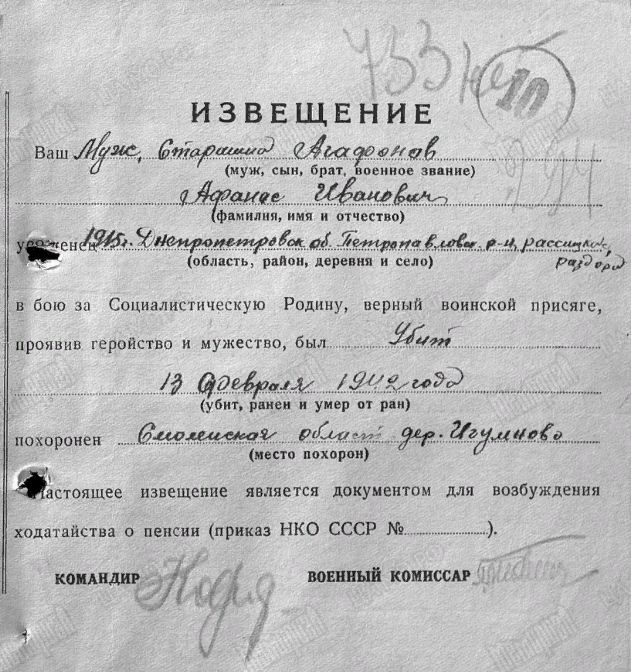 733 нет
10
ИЗВЕЩЕНИЕ
Ваш Муж, Старшина Агафонов
(муж, сын, брат, военное звание)
Афанас Иванович
(фамилия, имя и отчество)
уроженец 1915г. Днепропетровск об. Петропавловск. р-н,
раздоры
(область, район, деревня и село)
в бою за Социалистическую Родину, верный воинской присяге,
проявив геройство и мужество, был Убит
13 февраля 1942 года
(убит, ранен и умер от ран)
похоронен Смоленская област дер. Игумново
(место похорон)
Настоящее извещение является документом для возбуждения
ходатайства о пенсии (приказ НКО СССР № ).
КОМАНДИР
ВОЕННЫЙ КОМИССАР